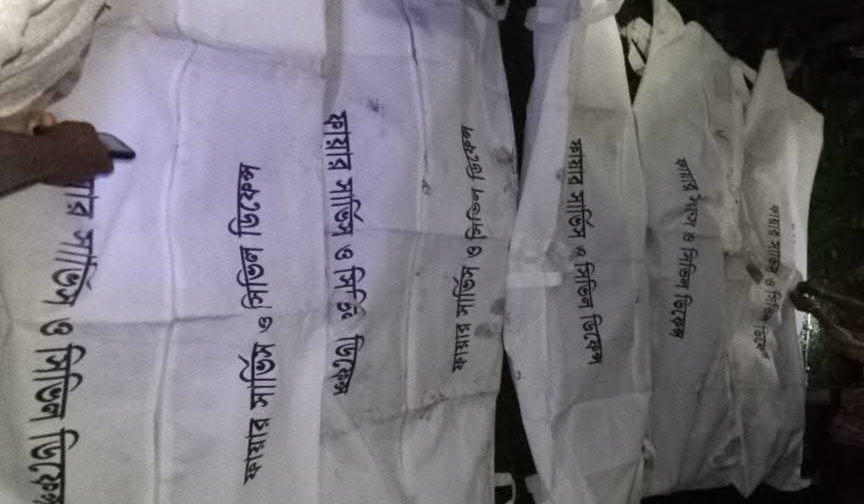 ফায়ার সার্ভিস ও সিভিল ডিফেন্স
ফায়ার সার্ভিস ও সিভিল ডিফেন্স
ফায়ার সার্ভিস ও সিভিল ডিফেন্স
ফায়ার সার্ভিস ও সিভিল ডিফেন্স
ফায়ার সার্ভিস ও সিভিল ডিফেন্স
ফায়ার সার্ভিস ও সিভিল ডিফেন্স
ফায়ার সার্ভিস ও সিভিল ডিফেন্স